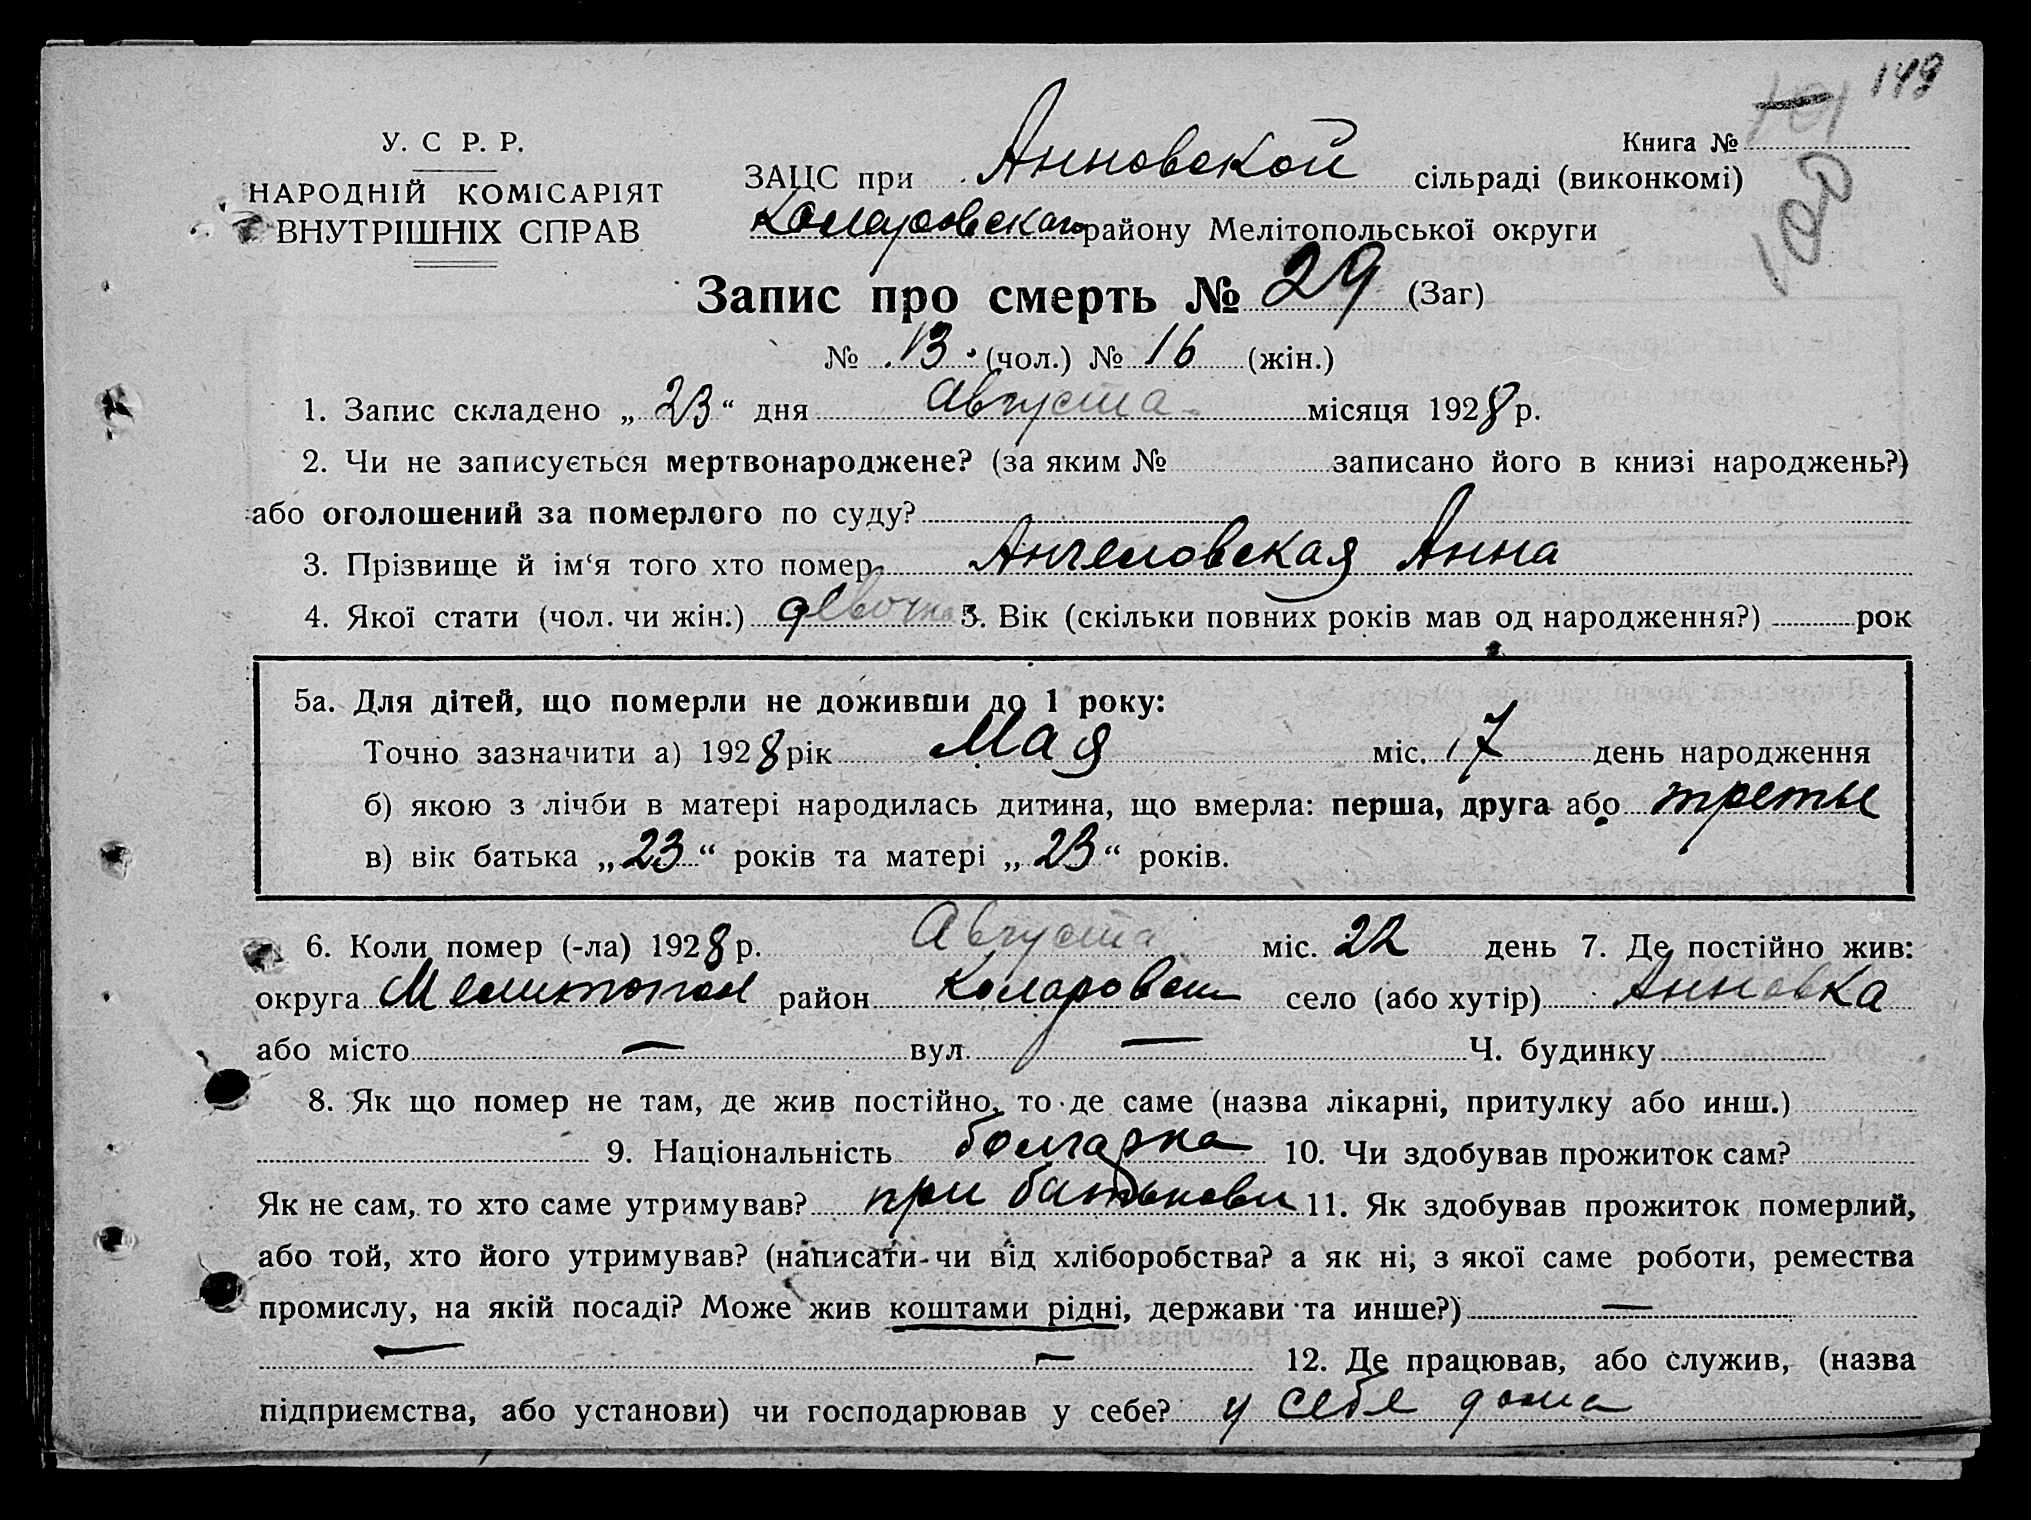 149
У. С Р. Р.
НАРОДНІЙ КОМІСАРІЯТ
ВНУТРІШНІХ СПРАВ
Книга №
100
ЗАЦС при Анновской сільраді (виконкомі)
Коларовского району Мелітопольської округи
Запис про смерть № 29 (Заг)
№ 13 (чол.) № 16 (жін.)
1. Запис складено „23“ дня Августа місяця 1928 р.
2. Чи не записується мертвонароджене? (за яким № записано його в книзі народжень?)
або оголошений за померлого по суду?
3. Прізвище й ім‘я того хто помер Ангеловская Анна
4. Якої стати (чол. чи жін.) девочка 5. Вік (скільки повних років мав од народження?) рок
5а. Для дітей, що померли не доживши до 1 року:
Точно зазначити а) 1928 рік Мая міс. 17 день народження
б) якою з лічби в матері народилась дитина, що вмерла: перша, друга або
в) вік батька „23“ років та матері „23“ років.
6. Коли помер (-ла) 1928 р. Августа міс. 22 день 7. Де постійно жив:
округа Мелитопол район Коларовск село (або хутір) Анновка
або місто — вул. — Ч. будинку
8. Як що помер не там, де жив постійно, то де саме (назва лікарні, притулку або инш.)
9. Національність болгарка 10. Чи здобував прожиток сам?
Як не сам, то хто саме утримував? при батькови 11. Як здобував прожиток померлий,
або той, хто його утримував? (написати чи від хліборобства? а як ні, з якої саме роботи, ремества
промислу, на якій посаді? Може жив коштами рідні, держави та инше?) —
— — 12. Де працював, або служив, (назва
підприємства, або установи) чи господарював у себе? у себе дома